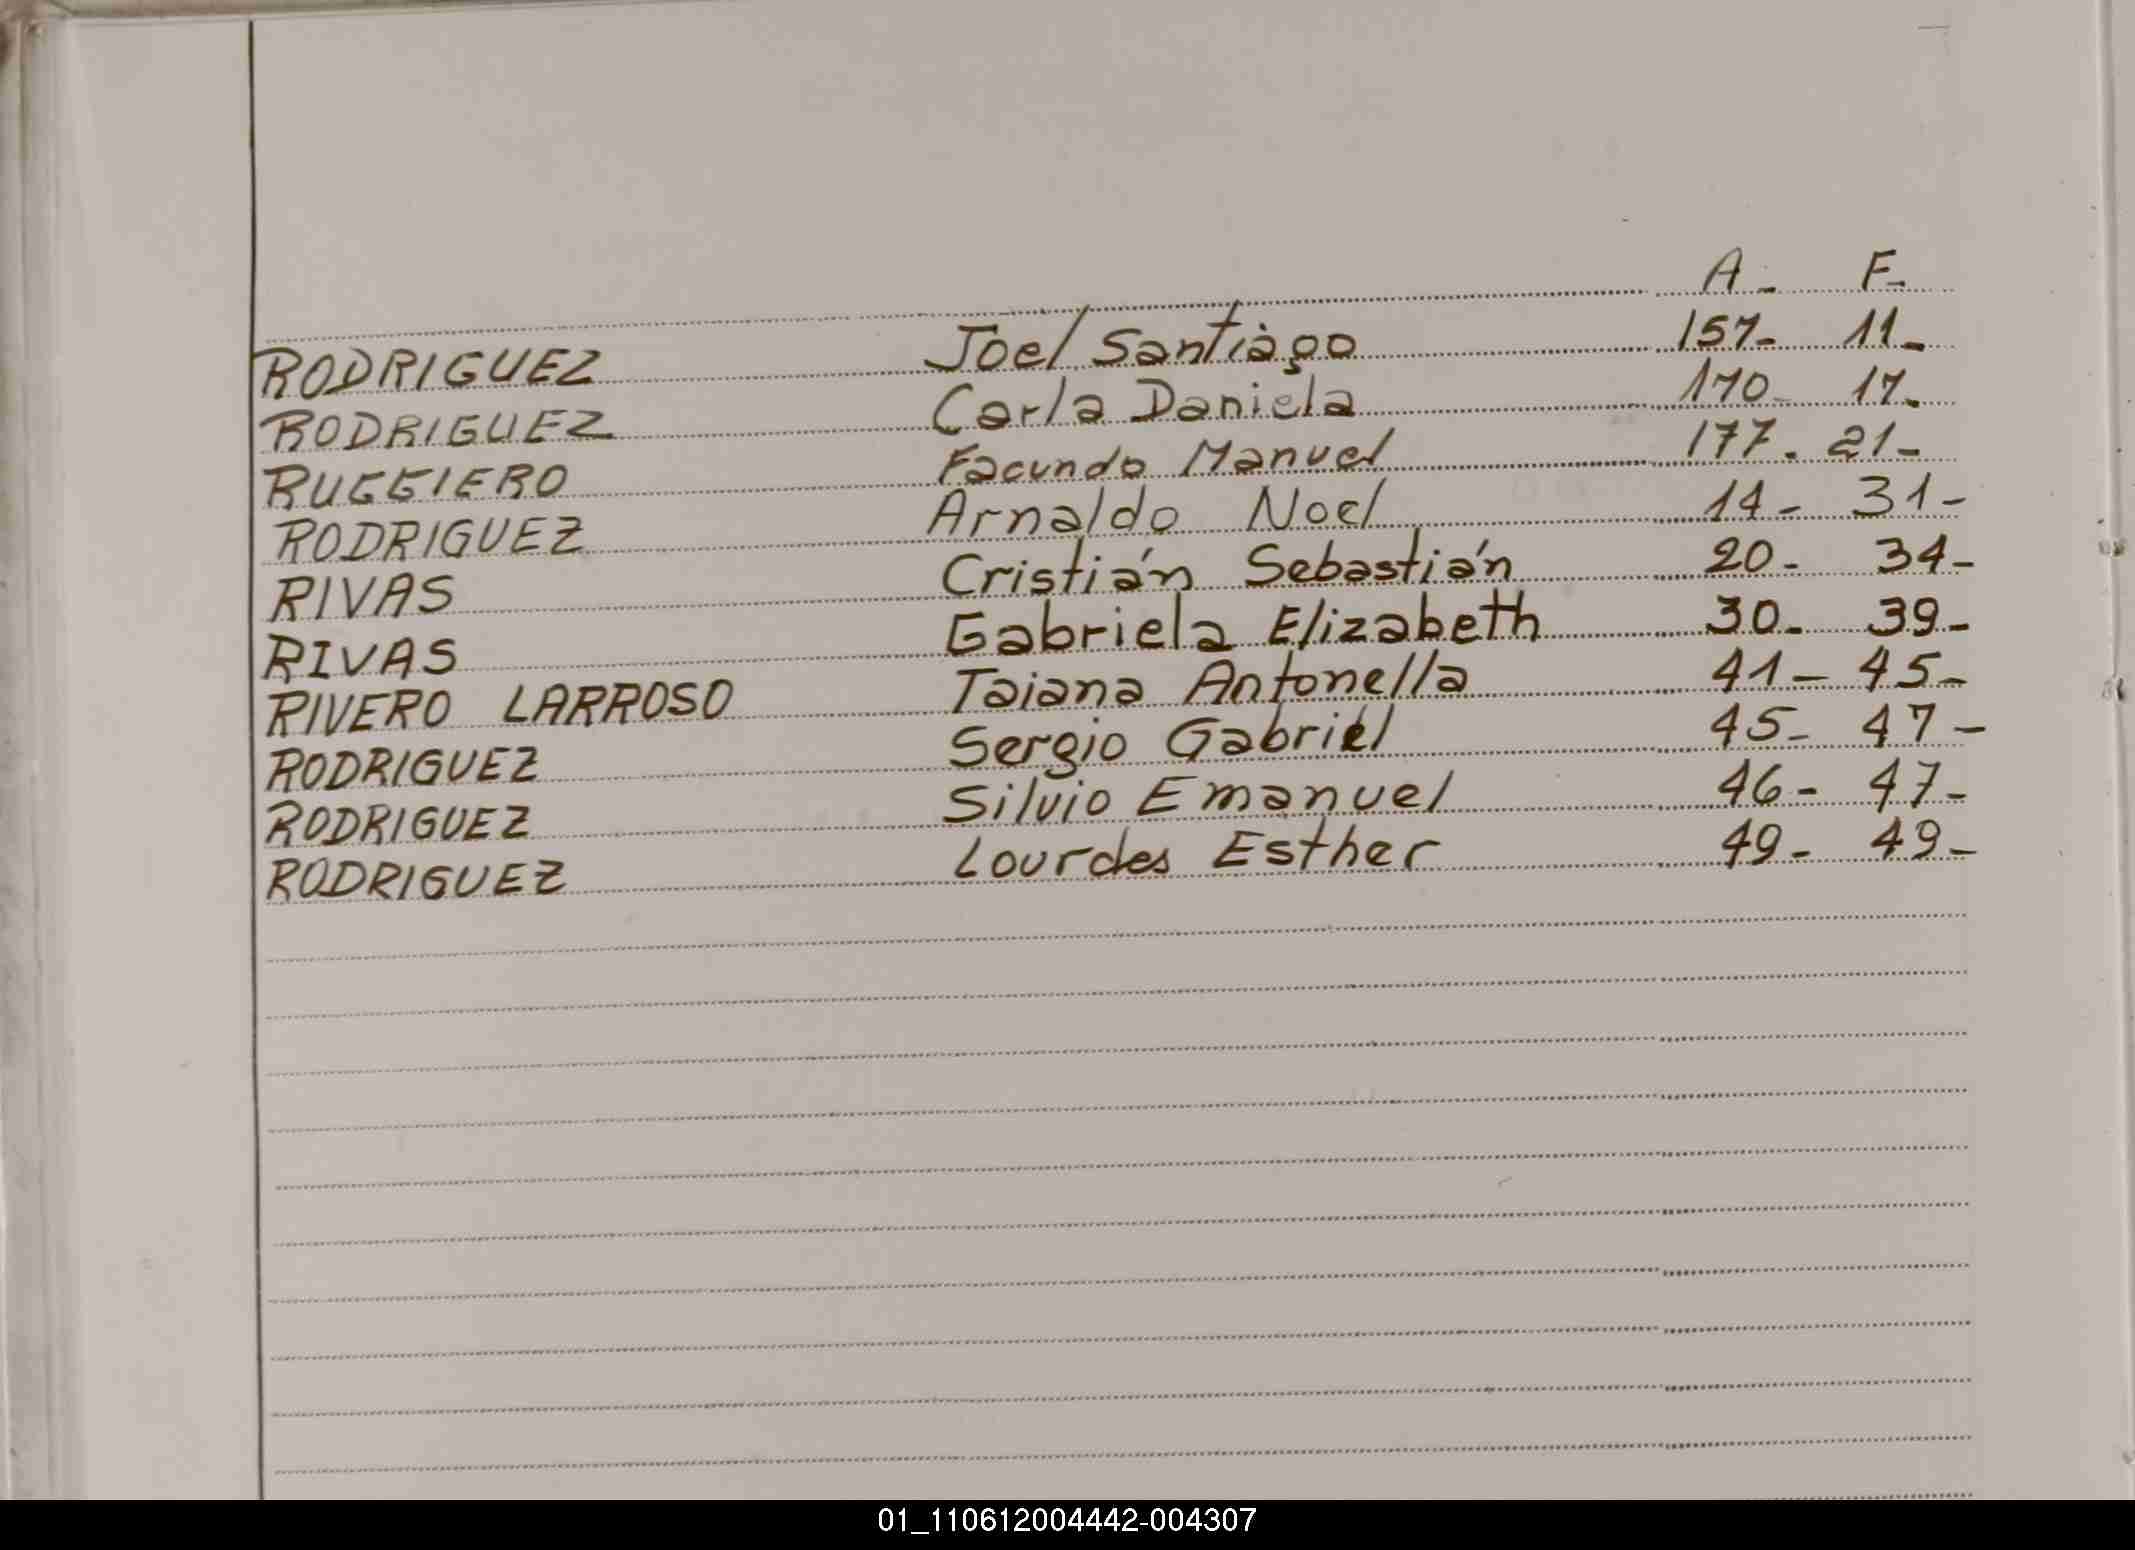 A - F -
RODRIGUEZ Joel Santiago 157 - 11 -
RODRIGUEZ Carla Daniela 170 - 17 -
RUGGIERO Facundo Manuel 177 . 21 -
RODRIGUEZ Arnaldo Noel 14 - 31 -
RIVAS Cristián Sebastián 20 - 34 -
RIVAS Gabriela Elizabeth 30 - 39 -
RIVERO LARROSO Taiana Antonella 41 - 45 -
RODRIGUEZ Sergio Gabriel 45 - 47 -
RODRIGUEZ Silvio Emanuel 46 - 47 -
RODRIGUEZ Lourdes Esther 49 - 49 -
01_110612004442-004307